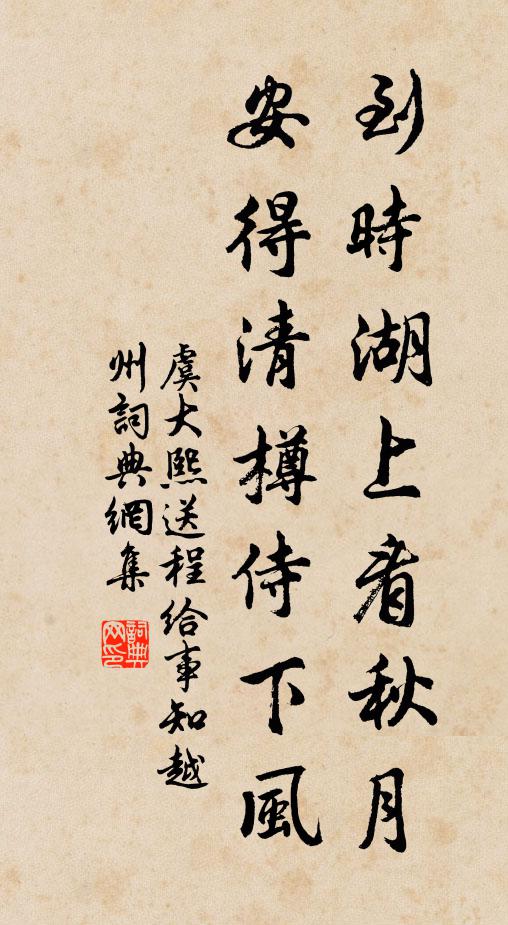 到時湖上看秋月
安得清樽侍下風
虞大熙送程給事知越
州詞典網集
詞典
网印